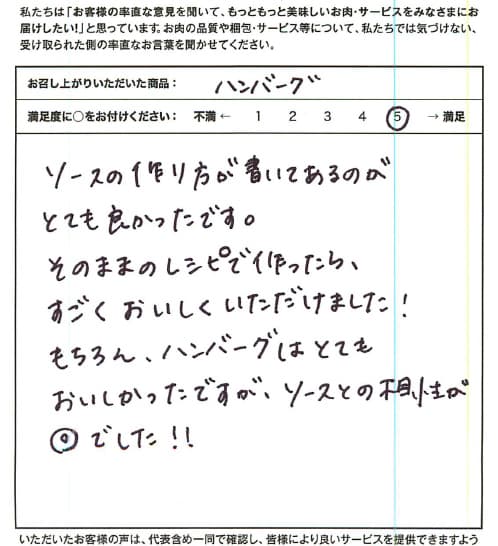 私たちは「お客様の率直な意見を聞いて、もっともっと美味しいお肉・サービスをみなさまにお
届けしたい!」と思っています。お肉の品質や梱包・サービス等について、私たちでは気づけない、
受け取られた側の率直なお言葉を聞かせてください。
お召し上がりいただいた商品： ハンバーグ
満足度に○をお付けください： 不満 ← 1 2 3 4 5 → 満足
ソースの作り方が書いてあるのが
とても良かったです。
そのままのレシピで作ったら、
すごくおいしくいただけました！
もちろん、ハンバーグはとても
おいしかったですが、ソースとの相性が
◎でした!!
いただいたお客様の声は、代表含め一同で確認し、皆様により良いサービスを提供できますよう